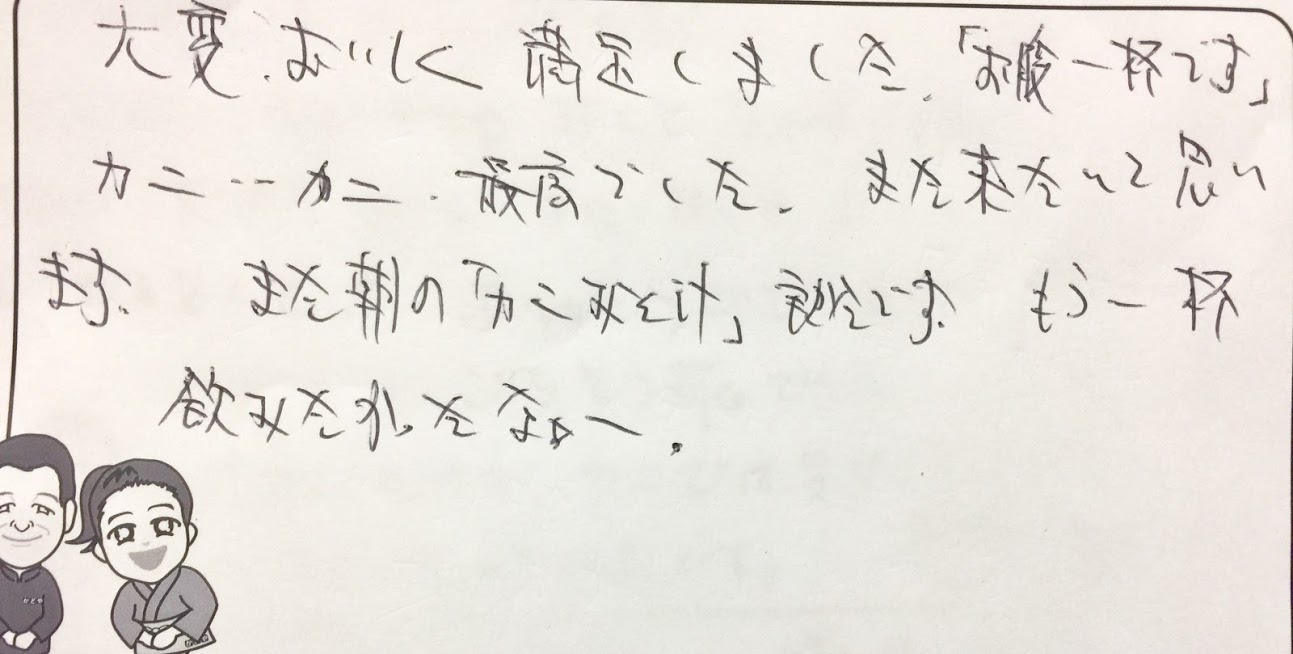 大変、おいしく 満足しました。「お腹一杯です」
カニ・・カニ・最高でした。また来たいと思い
ます。 また朝の「カニみそ汁」 最高です。 もう一杯
飲みたかったなぁー。